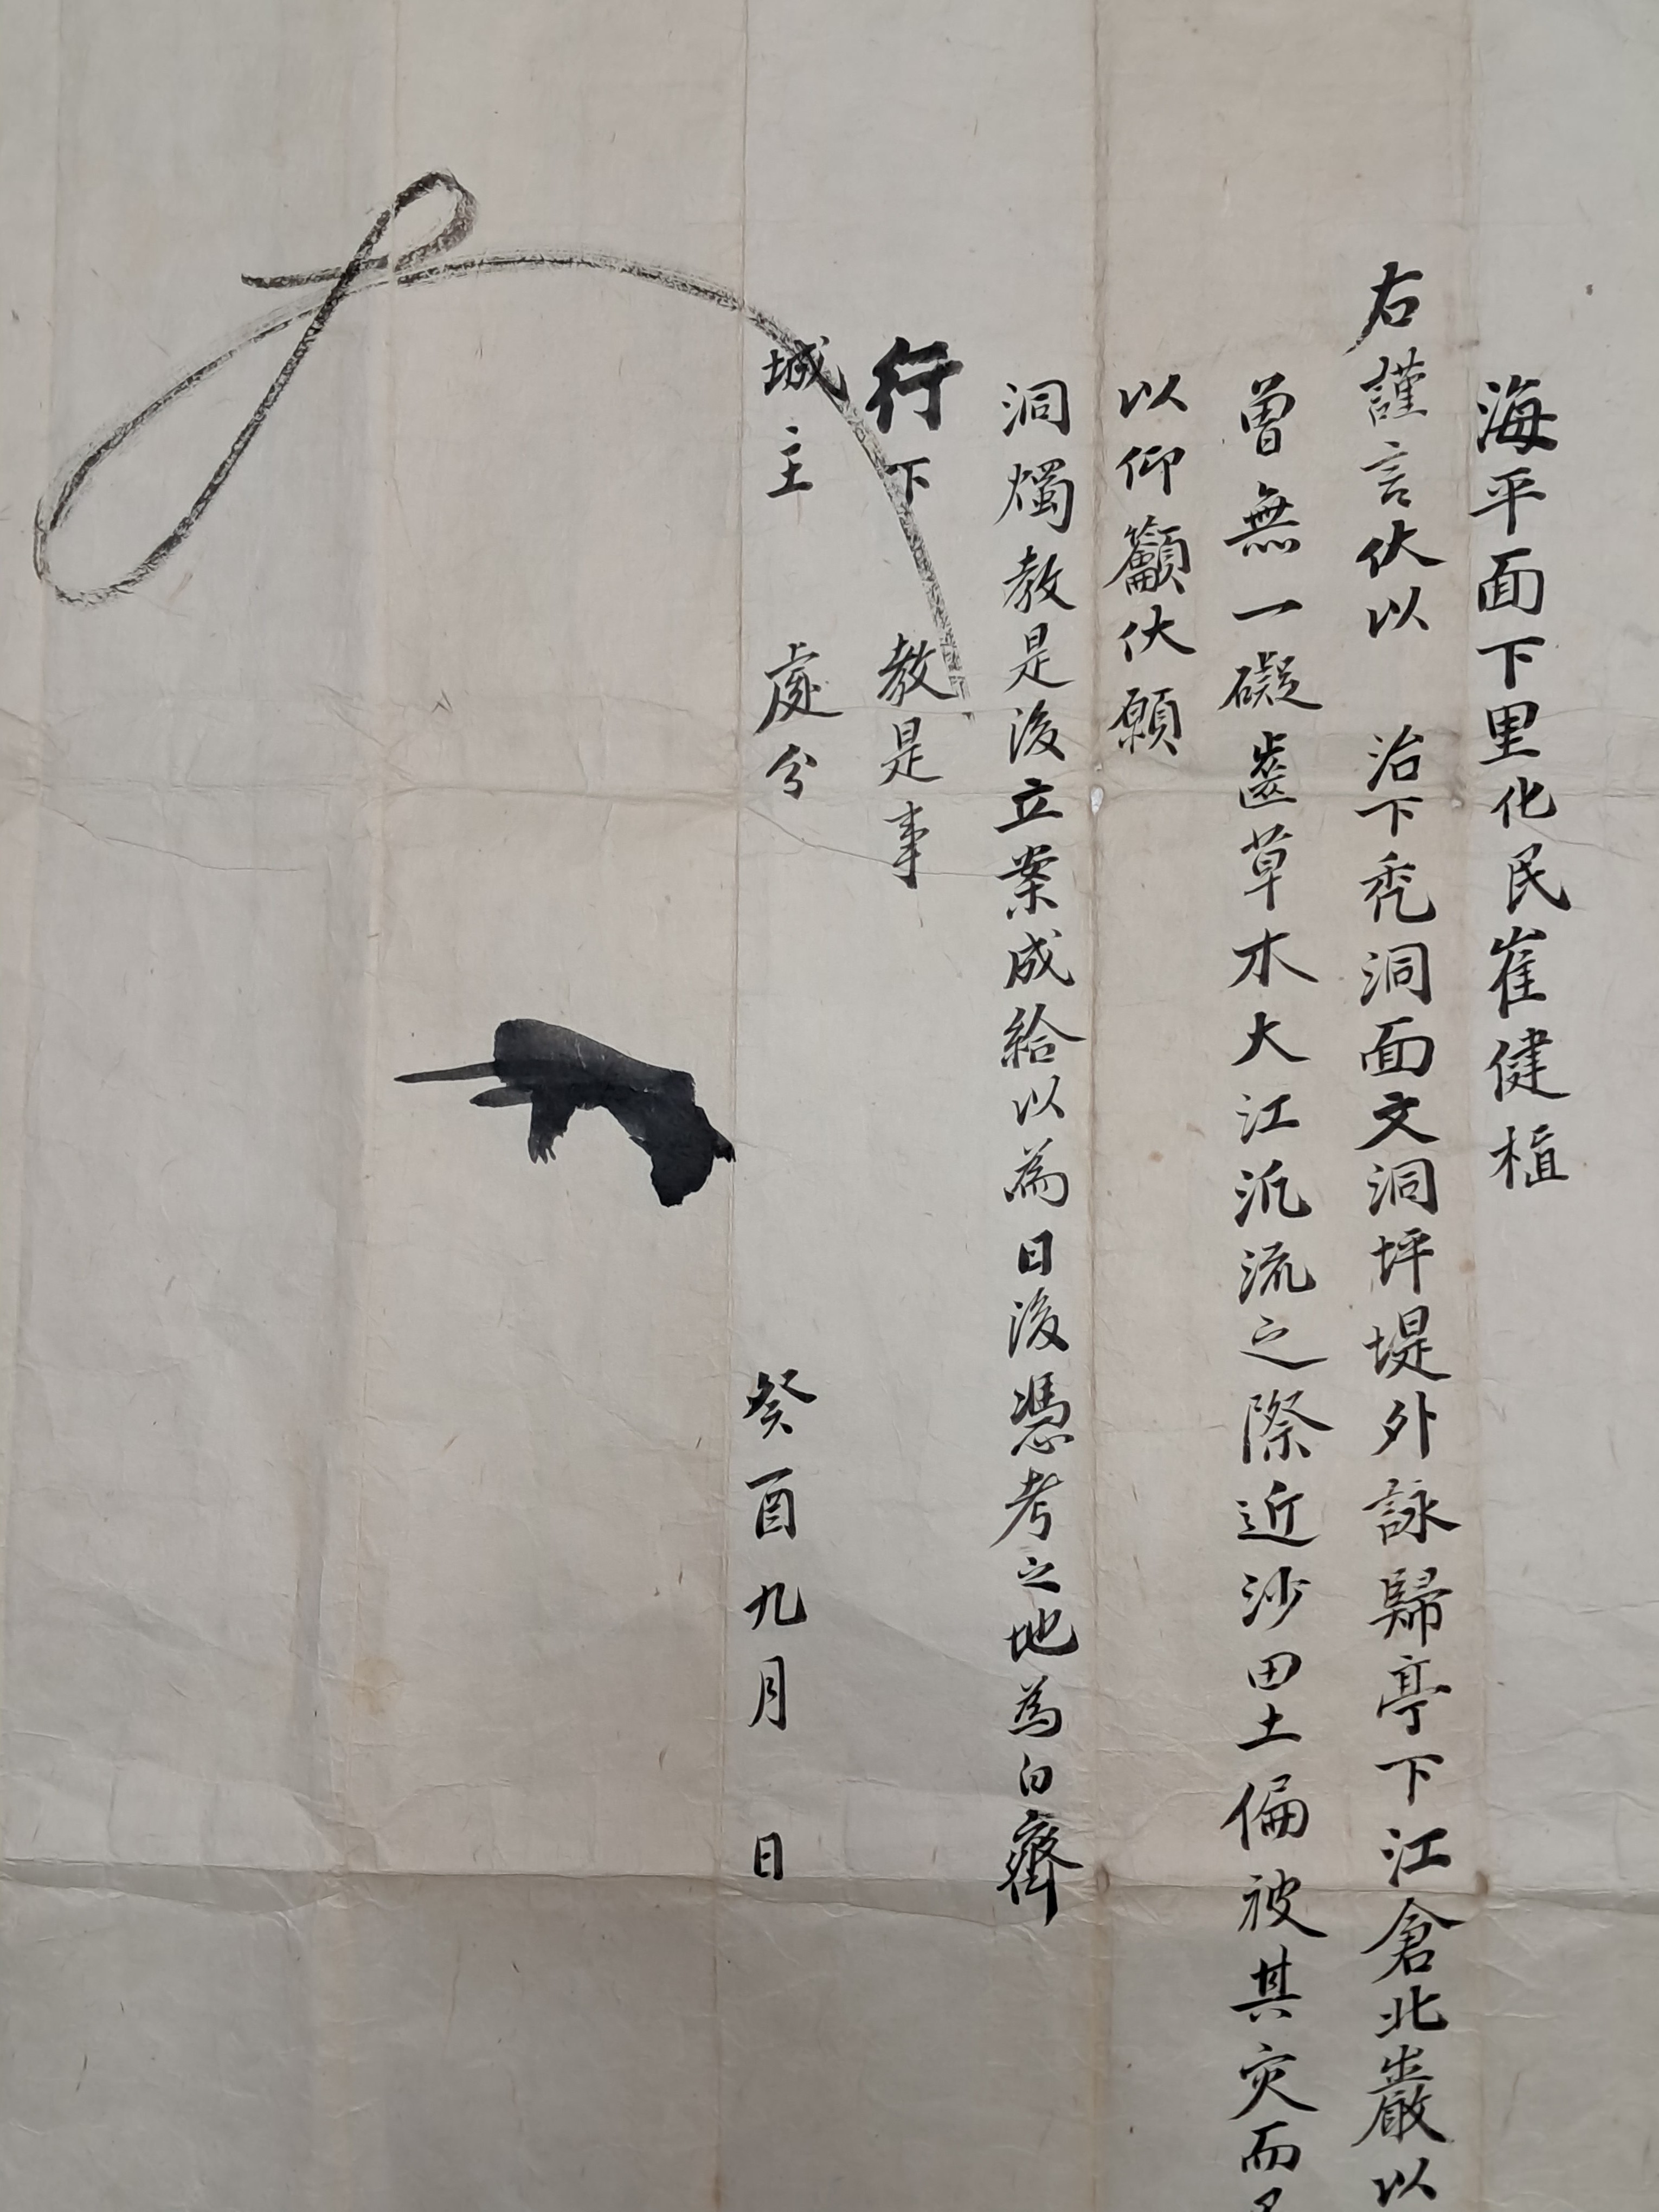 海平面下里化民崔健植
右謹言伏以 治下禿洞面文洞坪堤外詠歸亭下江倉北巖以
曾無一礙蓋草木大江汎流之際近沙田土偏被其灾而
以仰籲伏願
洞燭教是後立案成給以為日後憑考之地為白齊
行下 教是事
城主 處分
癸酉九月 日